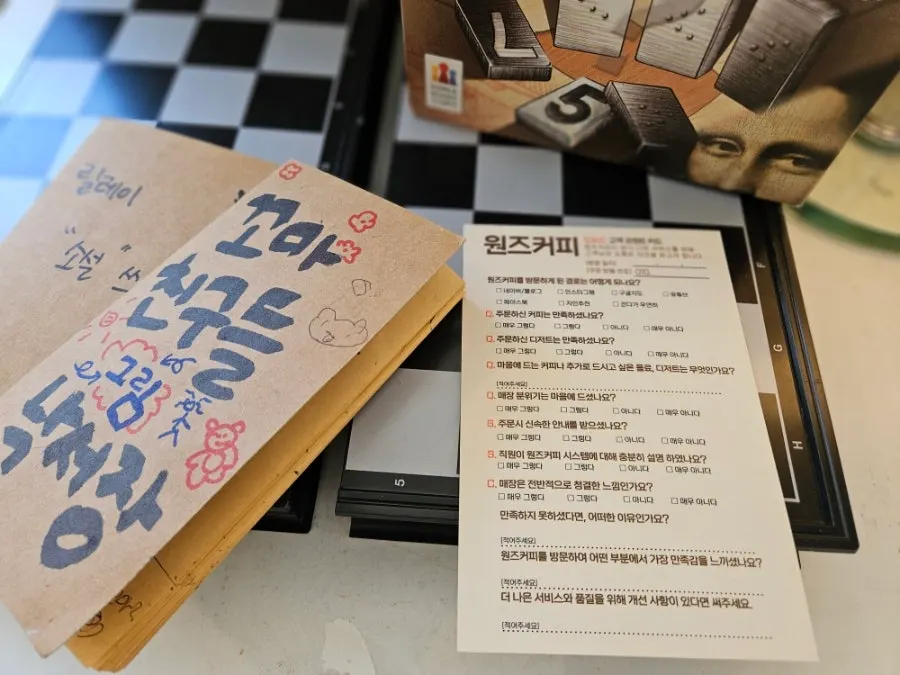 랄데이
친구들
그림
5
5
F
G
H
원즈커피
원즈커피를 방문하게 된 경로는 어떻게 되나요?
□ 네이버/블로그 □ 인스타그램 □ 구글지도 □ 유튜브
□ 페이스북 □ 지인추천 □ 걷다가 우연히
Q. 주문하신 커피는 만족하셨나요?
□ 매우 그렇다 □ 그렇다 □ 아니다 □ 매우 아니다
Q. 주문하신 디저트는 만족하셨나요?
□ 매우 그렇다 □ 그렇다 □ 아니다 □ 매우 아니다
Q. 마음에 드는 커피나 추가로 드시고 싶은 음료, 디저트는 무엇인가요?
(적어주세요)
Q. 매장 분위기는 마음에 드셨나요?
□ 매우 그렇다 □ 그렇다 □ 아니다 □ 매우 아니다
S. 주문시 신속한 안내를 받으셨나요?
□ 매우 그렇다 □ 그렇다 □ 아니다 □ 매우 아니다
S. 직원이 원즈커피 시스템에 대해 충분히 설명 하였나요?
□ 매우 그렇다 □ 그렇다 □ 아니다 □ 매우 아니다
C. 매장은 전반적으로 청결한 느낌인가요?
□ 매우 그렇다 □ 그렇다 □ 아니다 □ 매우 아니다
만족하지 못하셨다면, 어떠한 이유인가요?
(적어주세요)
원즈커피를 방문하여 어떤 부분에서 가장 만족감을 느끼셨나요?
(적어주세요)
더 나은 서비스와 품질을 위해 개선 사항이 있다면 써주세요.
(적어주세요)